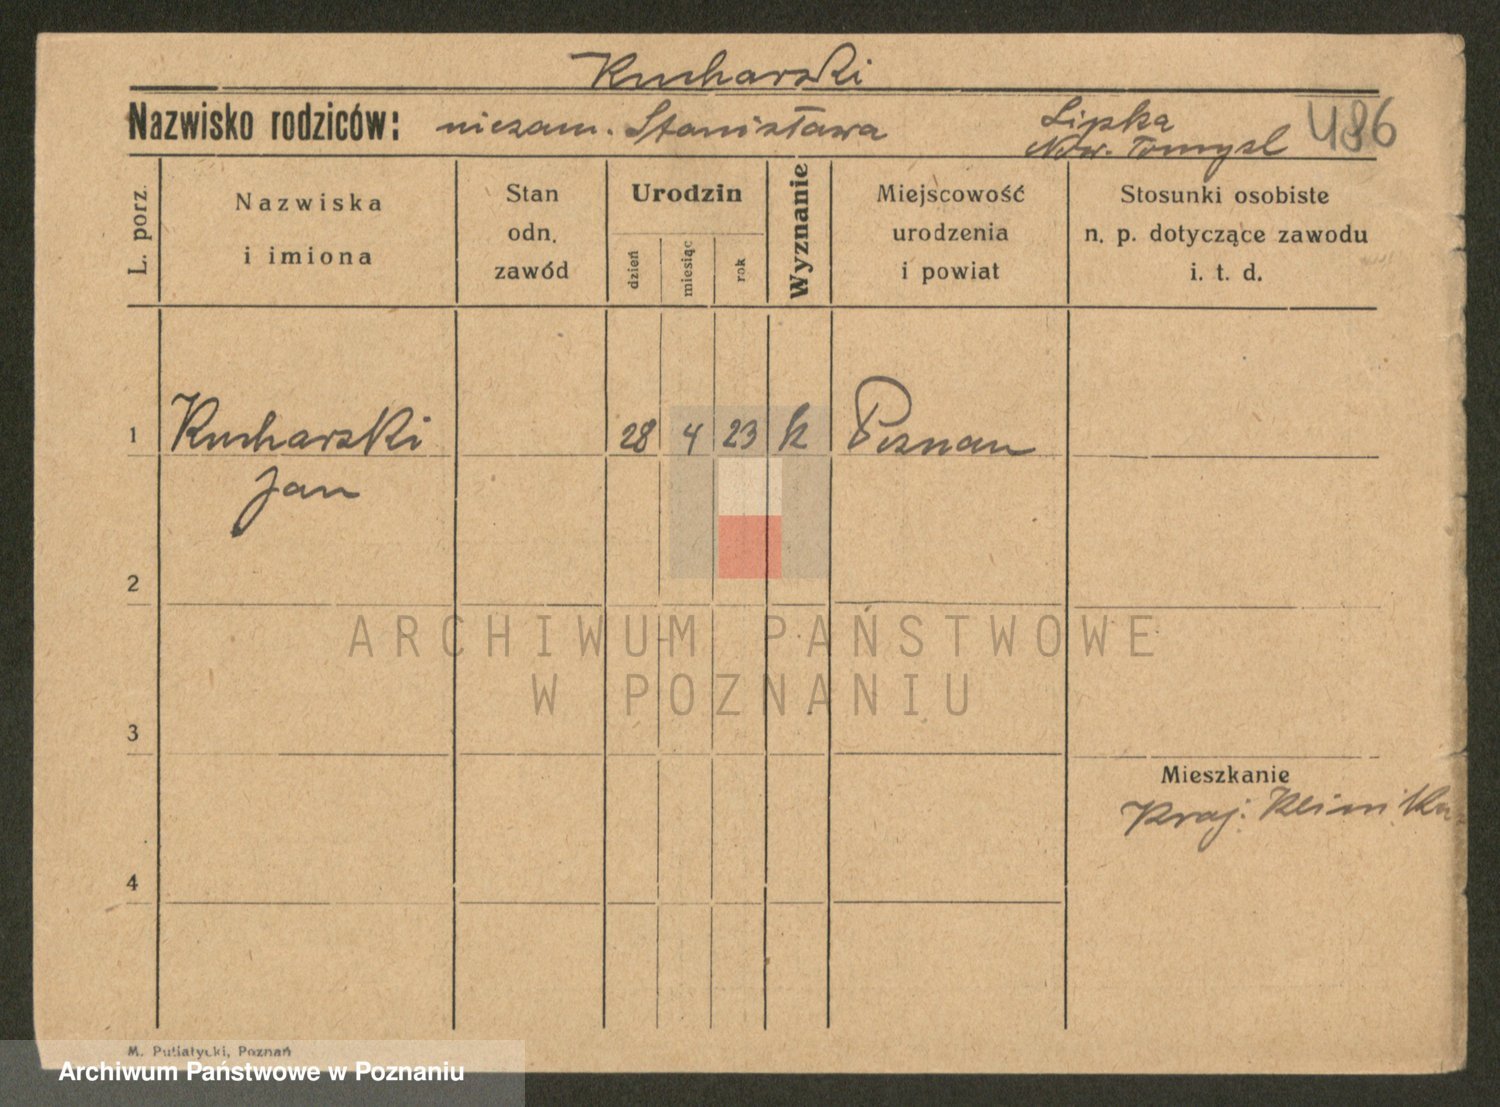 Kucharski
Nazwisko rodziców: niezam. Stanisława
Lipka
Now. Tomysl
486
L. porz.
Nazwiska
i imiona
Stan
odn.
zawód
Urodzin
dzień
miesiąc
rok
Wyznanie
Miejscowość
urodzenia
i powiat
Stosunki osobiste
n. p. dotyczące zawodu
i. t. d.
1 Kucharski 28 4 23 k Poznan
Jan
2
ARCHIWUM PAŃSTWOWE
W POZNANIU
3
Mieszkanie
Kraj. Klinika
4
M. Putiatycki, Poznań
Archiwum Państwowe w Poznaniu